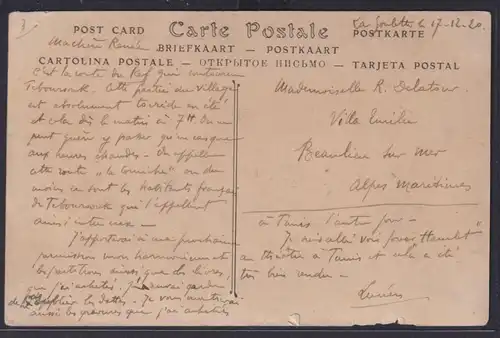 La Goulette, le 17-12-20.
POST CARD Carte Postale POSTKARTE
BRIEFKAART – POSTKAART
CARTOLINA POSTALE – ОТКРЫТОЕ ПИСЬМО – TARJETA POSTAL
Ma chère Renée
C'est la route du Kef qui contourne
Teboursouk. Cette partie du village
est absolument torride en été
et cela dès le matin à 7H. On ne
peut guère y passer qu'en casque
aux heures chaudes – On appelle
cette route "la corniche" ou du
moins ce sont les habitants français
de Teboursouk qui l'appellent
ainsi entre eux –
J'apporterai à ma prochaine
permission mon harmonium et
les partitions ainsi que les livres,
que j'ai achetés. J'
les dattes. Je vous
aussi les gravures que j'ai achetées
Mademoiselle R. Delatour
Villa Emilie
Beaulieu sur Mer
Alpes Maritimes
à Tunis l'autre jour –
Je suis allé voir jouer Hamlet
au théâtre à Tunis et cela a été
très bien rendu –